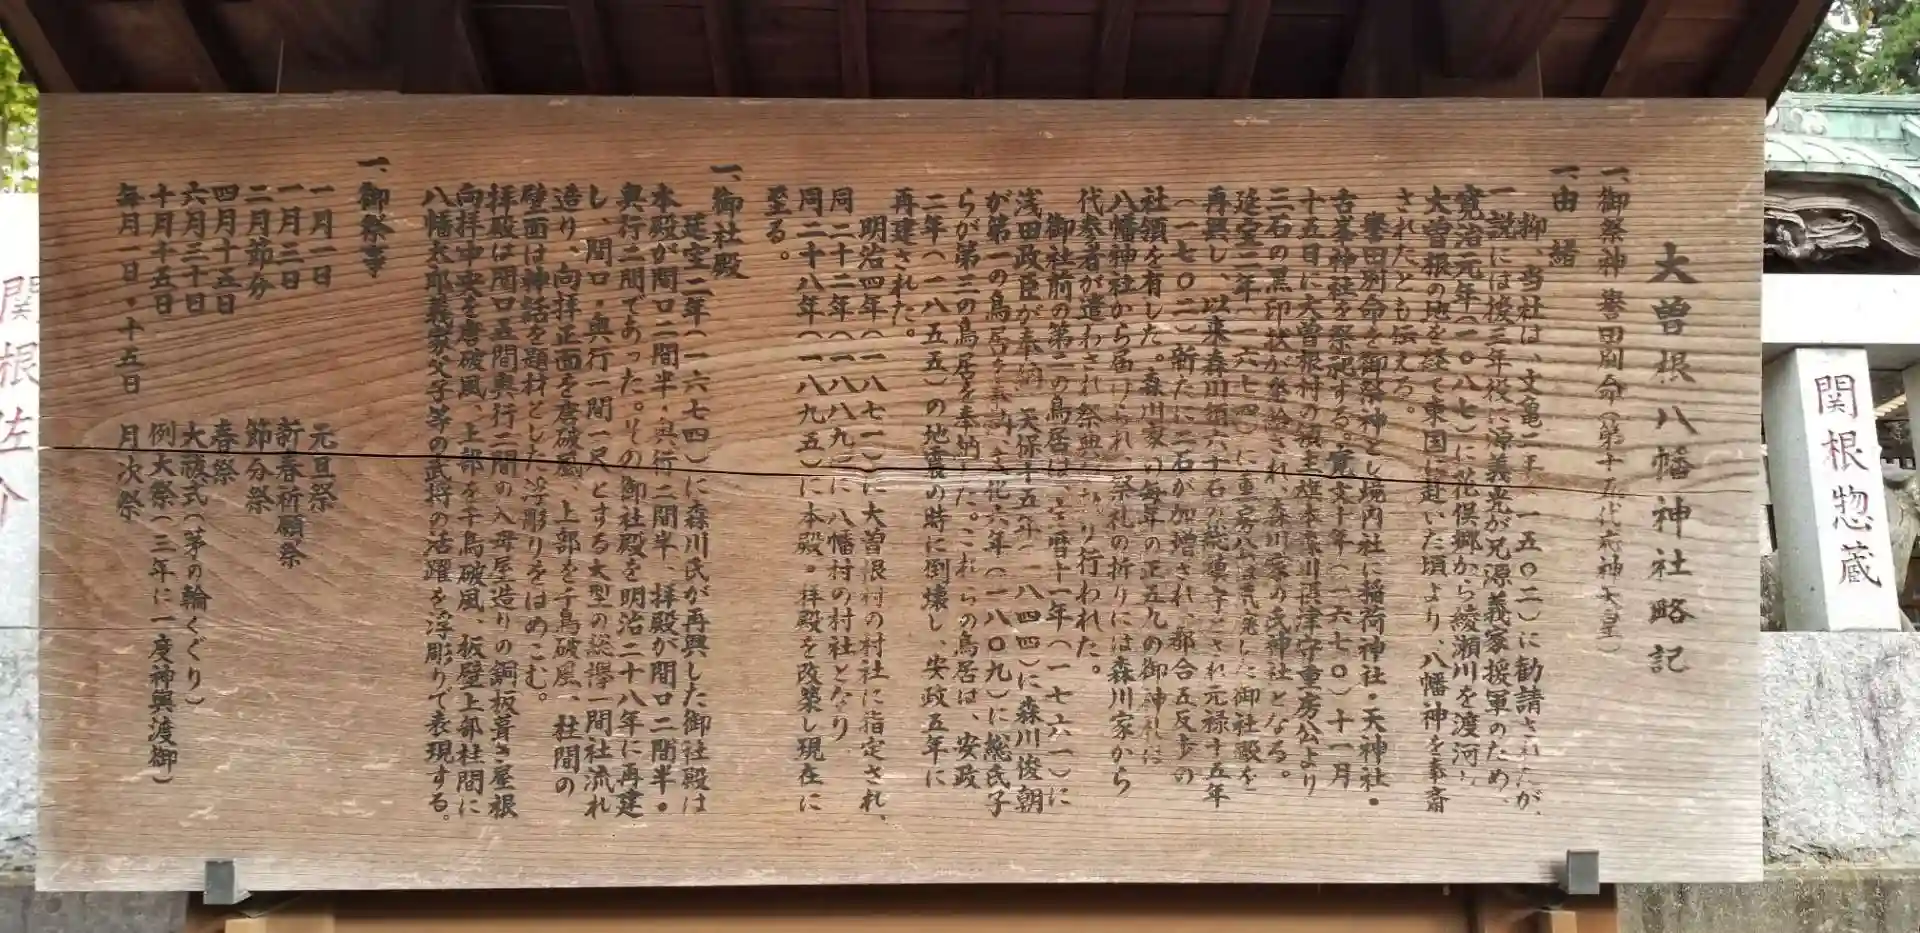 大曽根八幡神社略記
一、御祭神 誉田別命(第十五代応神天皇)
一、由緒
抑、当社は、文亀二年(一五〇二)に勧請されたが、
一説には後三年役に源義光が兄源義家援軍のため、
寛治元年(一〇八七)に花俣郷から綾瀬川を渡河し
大曽根の地を経て東国に赴いた頃より、八幡神を奉斎
されたとも伝える。
誉田別命を御祭神とし境内社に稲荷神社・天神社・
古峯神社を祭祀する。寛文十年(一六七〇)十一月
十五日に大曽根村の領主旗本森川摂津守重房公より
三石の黒印状が発給され、森川家の氏神社となる。
延宝二年(一六七四)に重房公は荒廃した御社殿を
再興し、以来森川領六十石の総鎮守とされ元禄十五年
(一七〇二)新たに二石が加増され、都合五反歩の
社領を有した。森川家の毎年の正五九の御神札は
八幡神社から届けられ、祭礼の折りには森川家から
代参者が遣わされ祭典が執り行われた。
御社前の第二の鳥居は、宝暦十一年(一七六一)に
浅田政臣が奉納、天保十五年(一八四四)に森川俊朝
が第一の鳥居を奉納、文化六年(一八〇九)に総氏子
らが第三の鳥居を奉納した。これらの鳥居は、安政
二年(一八五五)の地震の時に倒壊し、安政五年に
再建された。
明治四年(一八七一)に大曽根村の村社に指定され、
同二十二年(一八八九)に八幡村の村社となり
同二十八年(一八九五)に本殿・拝殿を改築し現在に
至る。
一、御社殿
延宝二年(一六七四)に森川氏が再興した御社殿は
本殿が間口二間半・奥行二間半、拝殿が間口二間半・
奥行二間であった。その御社殿を明治二十八年に再建
し、間口・奥行一間一尺とする大型の総欅一間社流れ
造り、向拝正面を唐破風、上部を千鳥破風、柱間の
壁面は神話を題材とした浮彫りをはめこむ。
拝殿は間口五間奥行二間の入母屋造りの銅板葺き屋根
向拝中央を唐破風、上部を千鳥破風、板壁上部柱間に
八幡太郎義家父子等の武将の活躍を浮彫りで表現する。
一、御祭等
一月一日 元旦祭
一月三日 新春祈願祭
二月節分 節分祭
四月十五日 春祭
六月三十日 大祓式(茅の輪くぐり)
十月十五日 例大祭(三年に一度神輿渡御)
毎月一日・十五日 月次祭
関根惣蔵
関根佐介